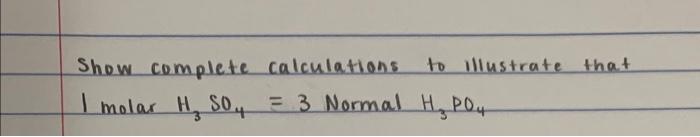 Show complete calculations to illustrate that
1 molar H₃ SO₄ = 3 Normal H₃ PO₄